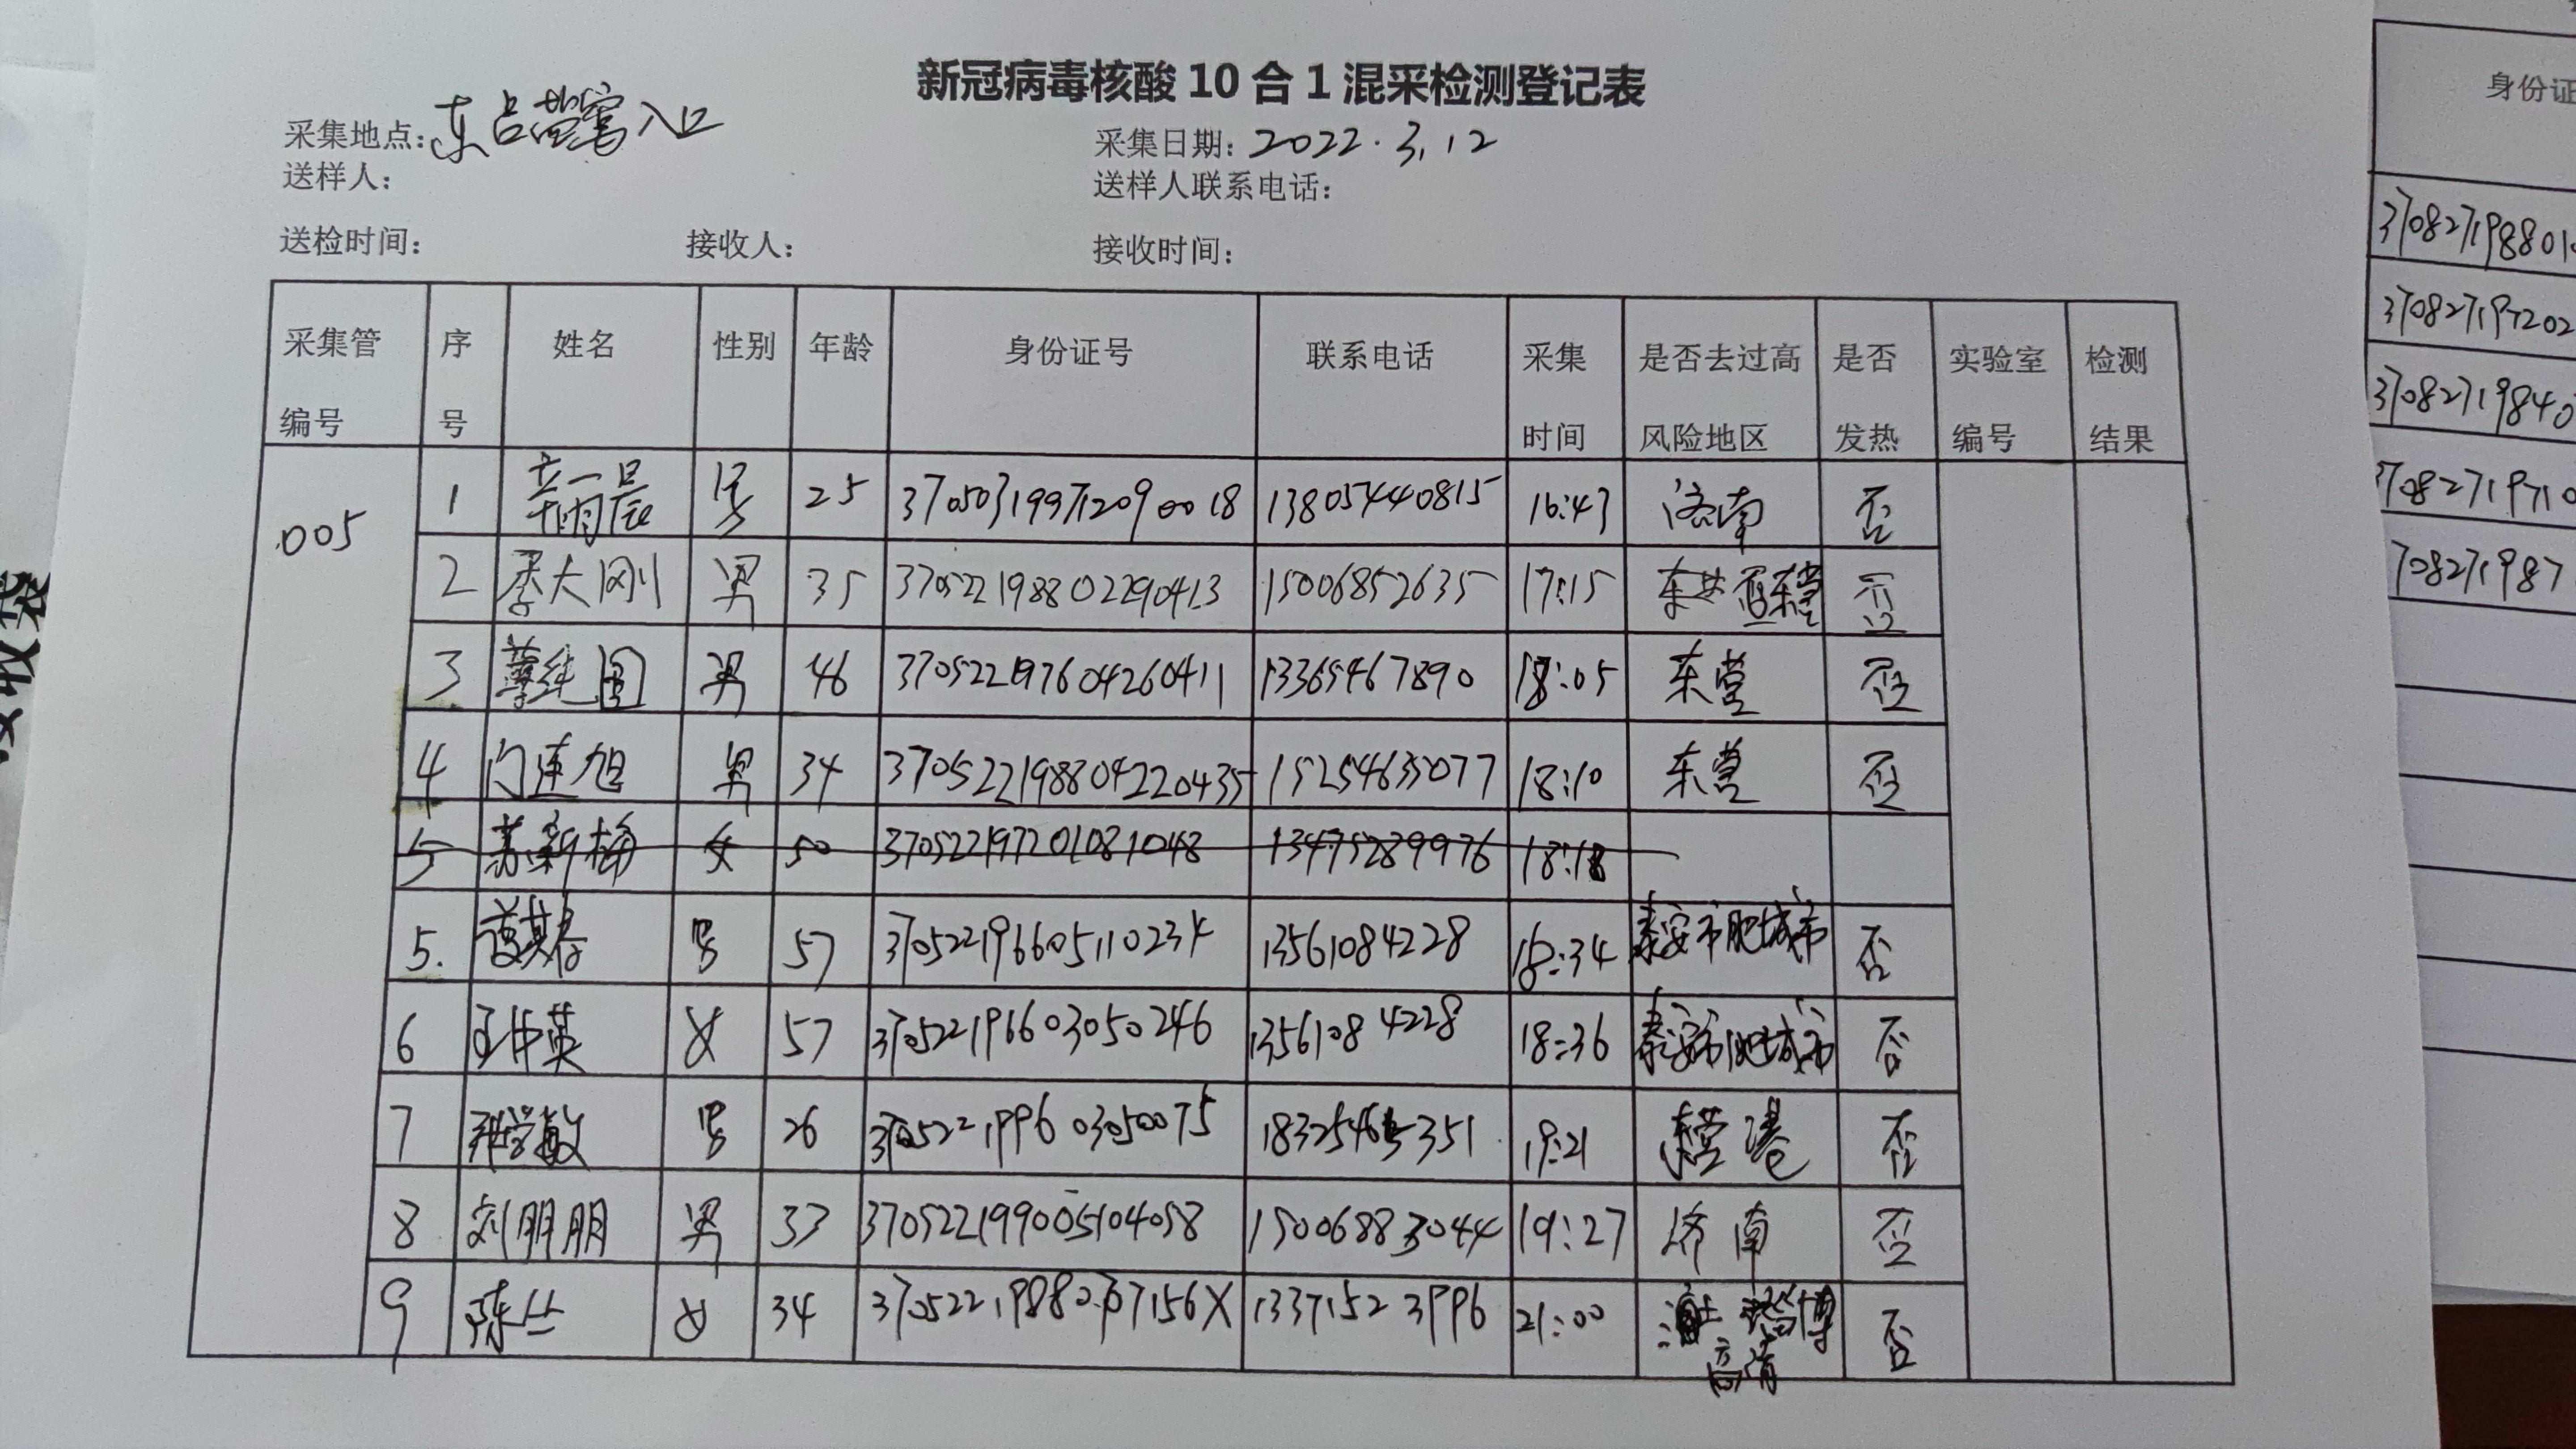 新冠病毒核酸10合1混采检测登记表
采集地点: 东 入口 采集日期: 2022.3.12
送样人: 送样人联系电话:
送检时间: 接收人: 接收时间:
采集管编号 序号 姓名 性别 年龄 身份证号 联系电话 采集时间 是否去过高风险地区 是否发热 实验室编号 检测结果
005 1 辛雨晨 男 25 370503199712090018 138057440815 16:43 济南 否
2 李大刚 男 35 370522198802290413 15006852635 17:15 东营 否
3 薄纯国 男 46 370522197604260411 13365467890 18:05 东营 否
4 门连旭 男 34 370522198804220435 15254635077 18:10 东营 否
5 苏新梅 女 50 370522197201081048 13475289976 18:18
5. 男 57 370522196605110234 13561084228 18:34 泰安市肥城市 否
6 英 女 57 370522196603050246 13561084228 18:36 泰安市肥城市 否
7 学敏 男 26 370522199603050075 351 19:21 东营港 否
8 刘朋朋 男 33 370522199005104058 15006883044 19:27 济南 否
9 陈 女 34 13371523996 21:00 淄博高青 否
身份证
370827198801
370827197202
37082719840
37082719710
708271987